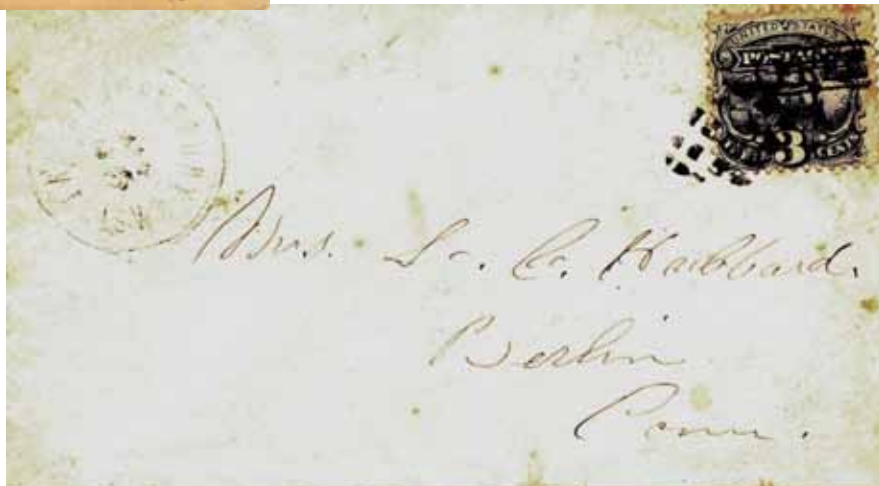 UNITED STATES
POSTAGE
3 CENTS
Mrs. L. C. Hubbard.
Berlin
Conn.